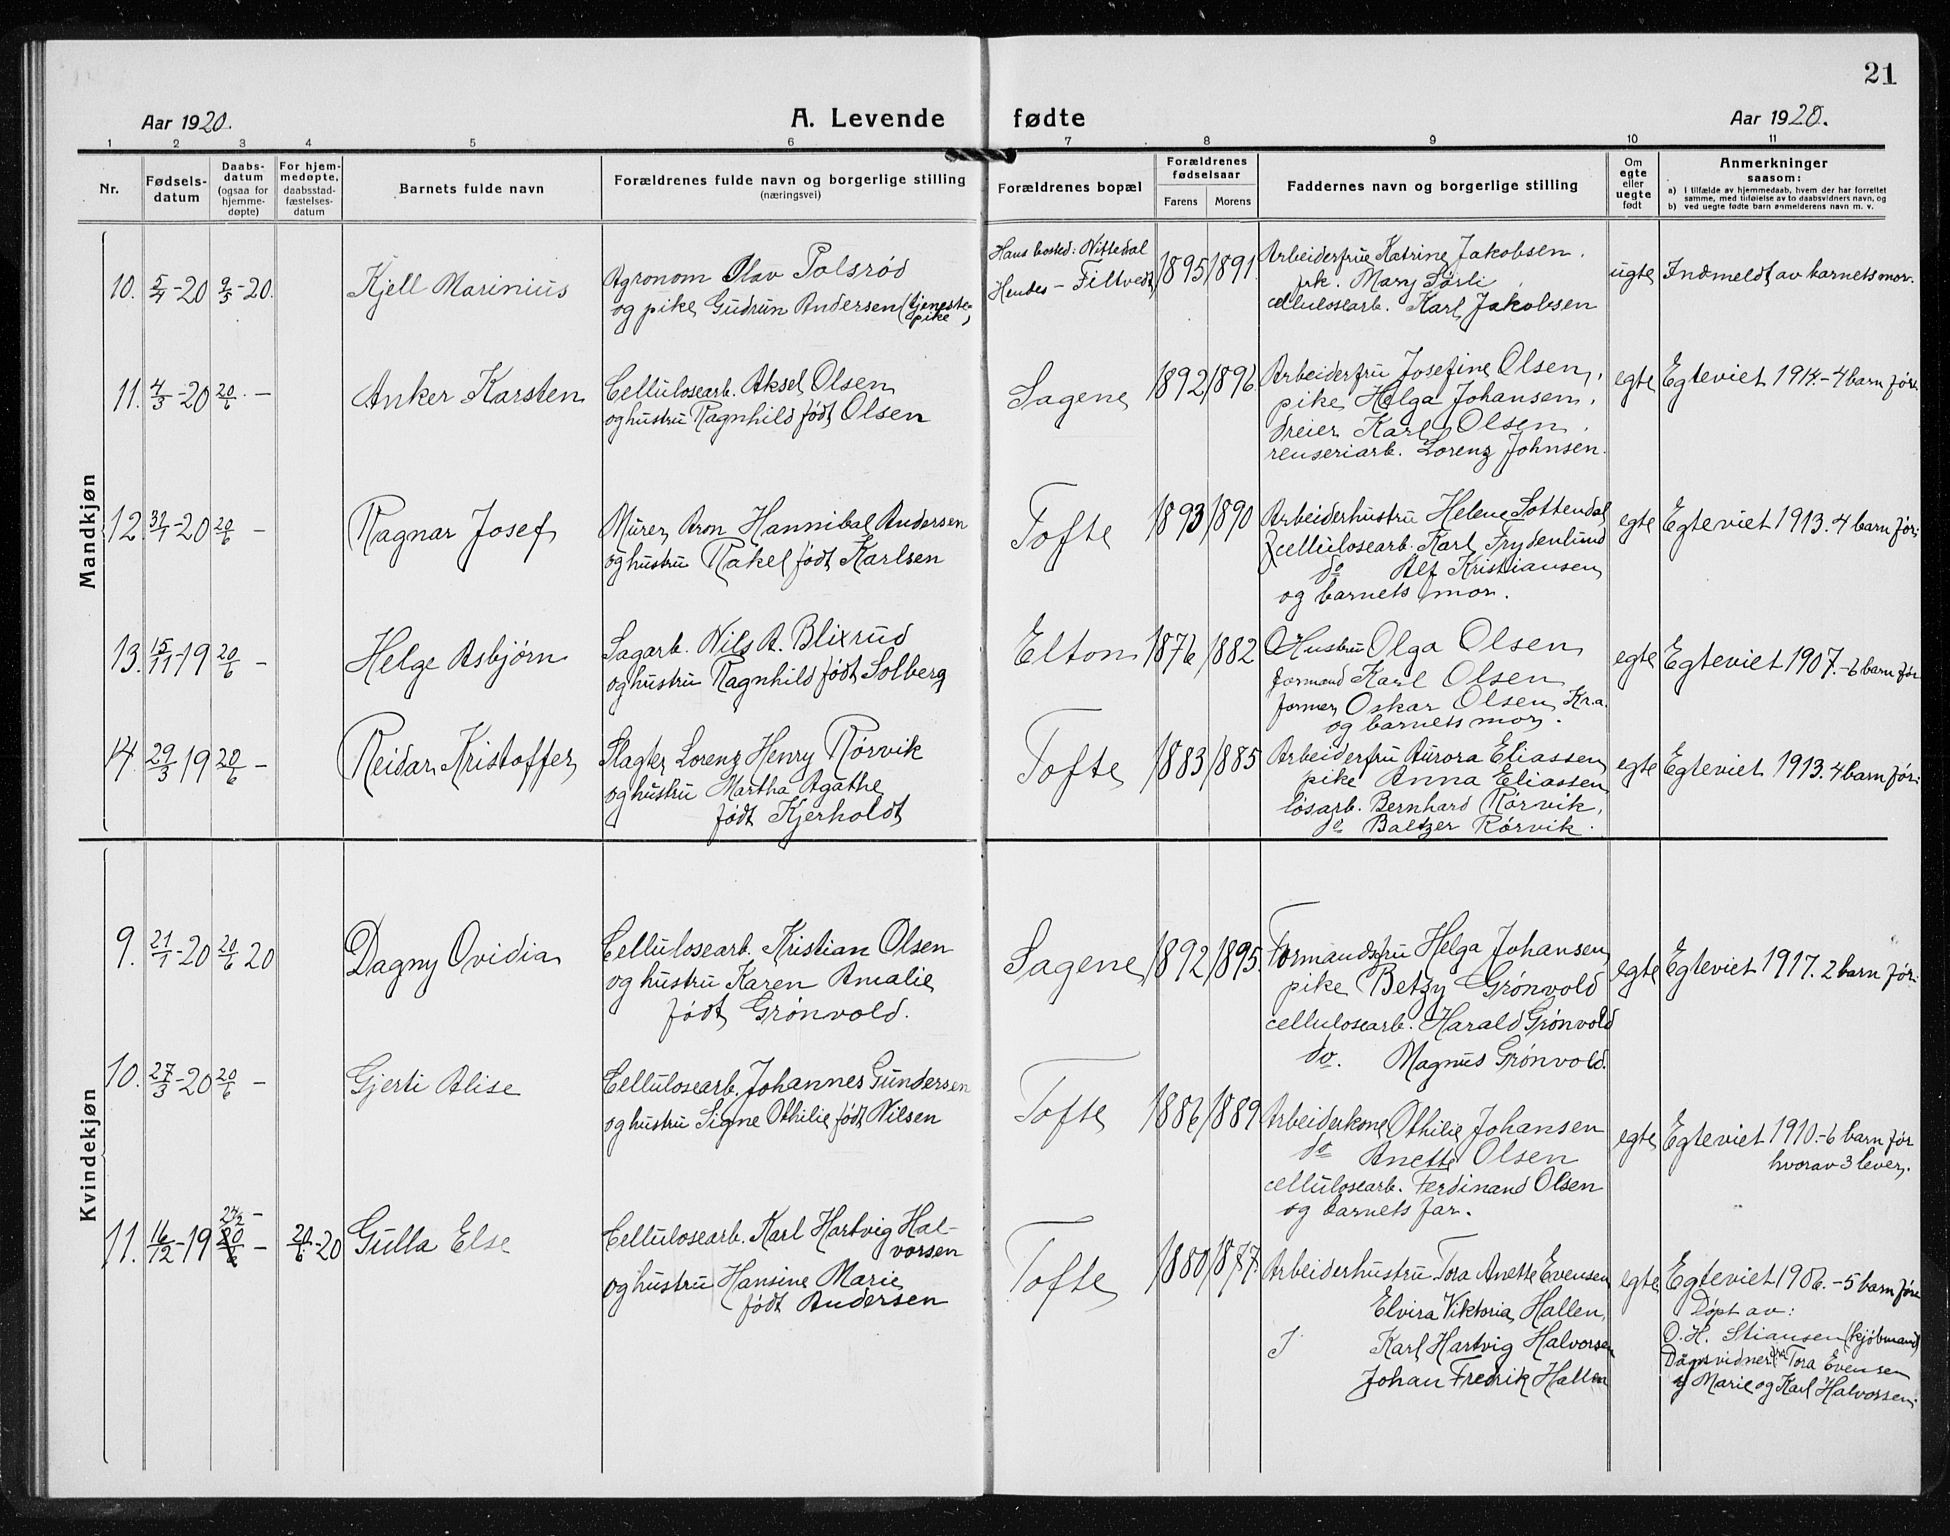 21
Aar 1920.
A. Levende fødte
Aar 1920.
1 2 3 4 5 6 7 8 9 10 11
Nr.
Fødsels-
datum
Daabs-
datum
(ogsaa for
hjemme-
døpte)
For hjem-
medøpte,
daabsstad-
fæstelses-
datum
Barnets fulde navn
Forældrenes fulde navn og borgerlige stilling
(næringsvei)
Forældrenes bopæl
Forældrenes
fødselsaar
Farens Morens
Faddernes navn og borgerlige stilling
Om
egte
eller
uegte
født
Anmerkninger
saasom:
a) I tilfælde av hjemmedaab, hvem der har forrettet
samme, med tilføielse av to daabsvidners navn, og
b) ved uegte fødte barn anmelderens navn m. v.
Mandkjøn
10. 5/4-20 9/5-20.
Kjell Marinius
Agronom Olav Polsrød
og pike Gudrun Andersen (tjeneste-
pike)
Hans bosted: Nittedal
Hendes – Filtvedt
1895 1891.
Arbeiderfrue Katrine Jakobsen.
frk. Mary Sørli
cellulosearb. Karl Jakobsen
ugte
Indmeldt av barnets mor.
11. 4/3-20 20/6 –
Anker Karsten
Cellulosearb. Aksel Olsen
og hustru Ragnhild født Olsen
Sagene
1892 1896
Arbeiderfru Josefine Olsen,
pike Helga Johansen,
dreier Karl Olsen,
renseriarb. Lorenz Johnsen.
egte
Egteviet 1914. – 4 barn før
12. 31/1-20 20/6 –
Ragnar Josef
Murer Aron Hannibal Andersen
og hustru Rakel født Karlsen
Tofte
1893 1890
Arbeiderhustru Helene Sottendal
cellulosearb. Karl Frydenlund
do Alf Kristiansen
og barnets mor.
egte
Egteviet 1913. 4 barn før.
13. 15/11-19 20/6 –
Helge Asbjørn
Sagarb. Nils A. Blixrud
og hustru Ragnhild født Solberg
Elton
1876 1882
Hustru Olga Olsen
formand Karl Olsen
former Oskar Olsen, Kr.a.
og barnets mor.
egte
Egteviet 1907. – 6 barn før
14. 29/3 19 20/6 –
Reidar Kristoffer
Slagter Lorenz Henry Rørvik
og hustru Martha Agathe
født Kjerholdt
Tofte
1883 1885
Arbeiderfru Aurora Eliassen
pike Anna Eliassen
løsarb. Bernhard Rørvik,
do Baltzer Rørvik.
egte
Egteviet 1913. 4 barn før.
Kvindekjøn
9. 21/1-20 20/6 20
Dagny Ovidia
Cellulosearb. Kristian Olsen
og hustru Karen Amalie
født Grønvold.
Sagene
1892 1895.
Formandsfru Helga Johansen
pike Betzy Grønvold
cellulosearb. Harald Grønvold
do. Magnus Grønvold.
egte
Egteviet 1917. 2 barn før.
10. 27/3-20 20/6 –
Gjerti Alise
Cellulosearb. Johannes Gundersen
og hustru Signe Othilie født Nilsen
Tofte
1886 1889
Arbeiderkone Othilie Johansen
do Anette Olsen
cellulosearb. Ferdinand Olsen
og barnets far.
egte
Egteviet 1910. – 6 barn før
hvorav 3 lever.
11. 16/12-19 20/6 – 20/6-20
Gulla Else
Cellulosearb. Karl Hartvig Hal-
vorsen
og hustru Hansine Marie
født Andersen
Tofte
1880 1877.
Arbeiderhustru Tora Anette Evensen
Elvira Viktoria Hallen,
Karl Hartvig Halvorsen
Johan Fredrik Hallen
egte
Egteviet 1906. – 5 barn før
Døpt av:
O. H. Stiansen (kjøbmand)
Daapsvidner: Tora Evensen
Marie og Karl Halvorsen.